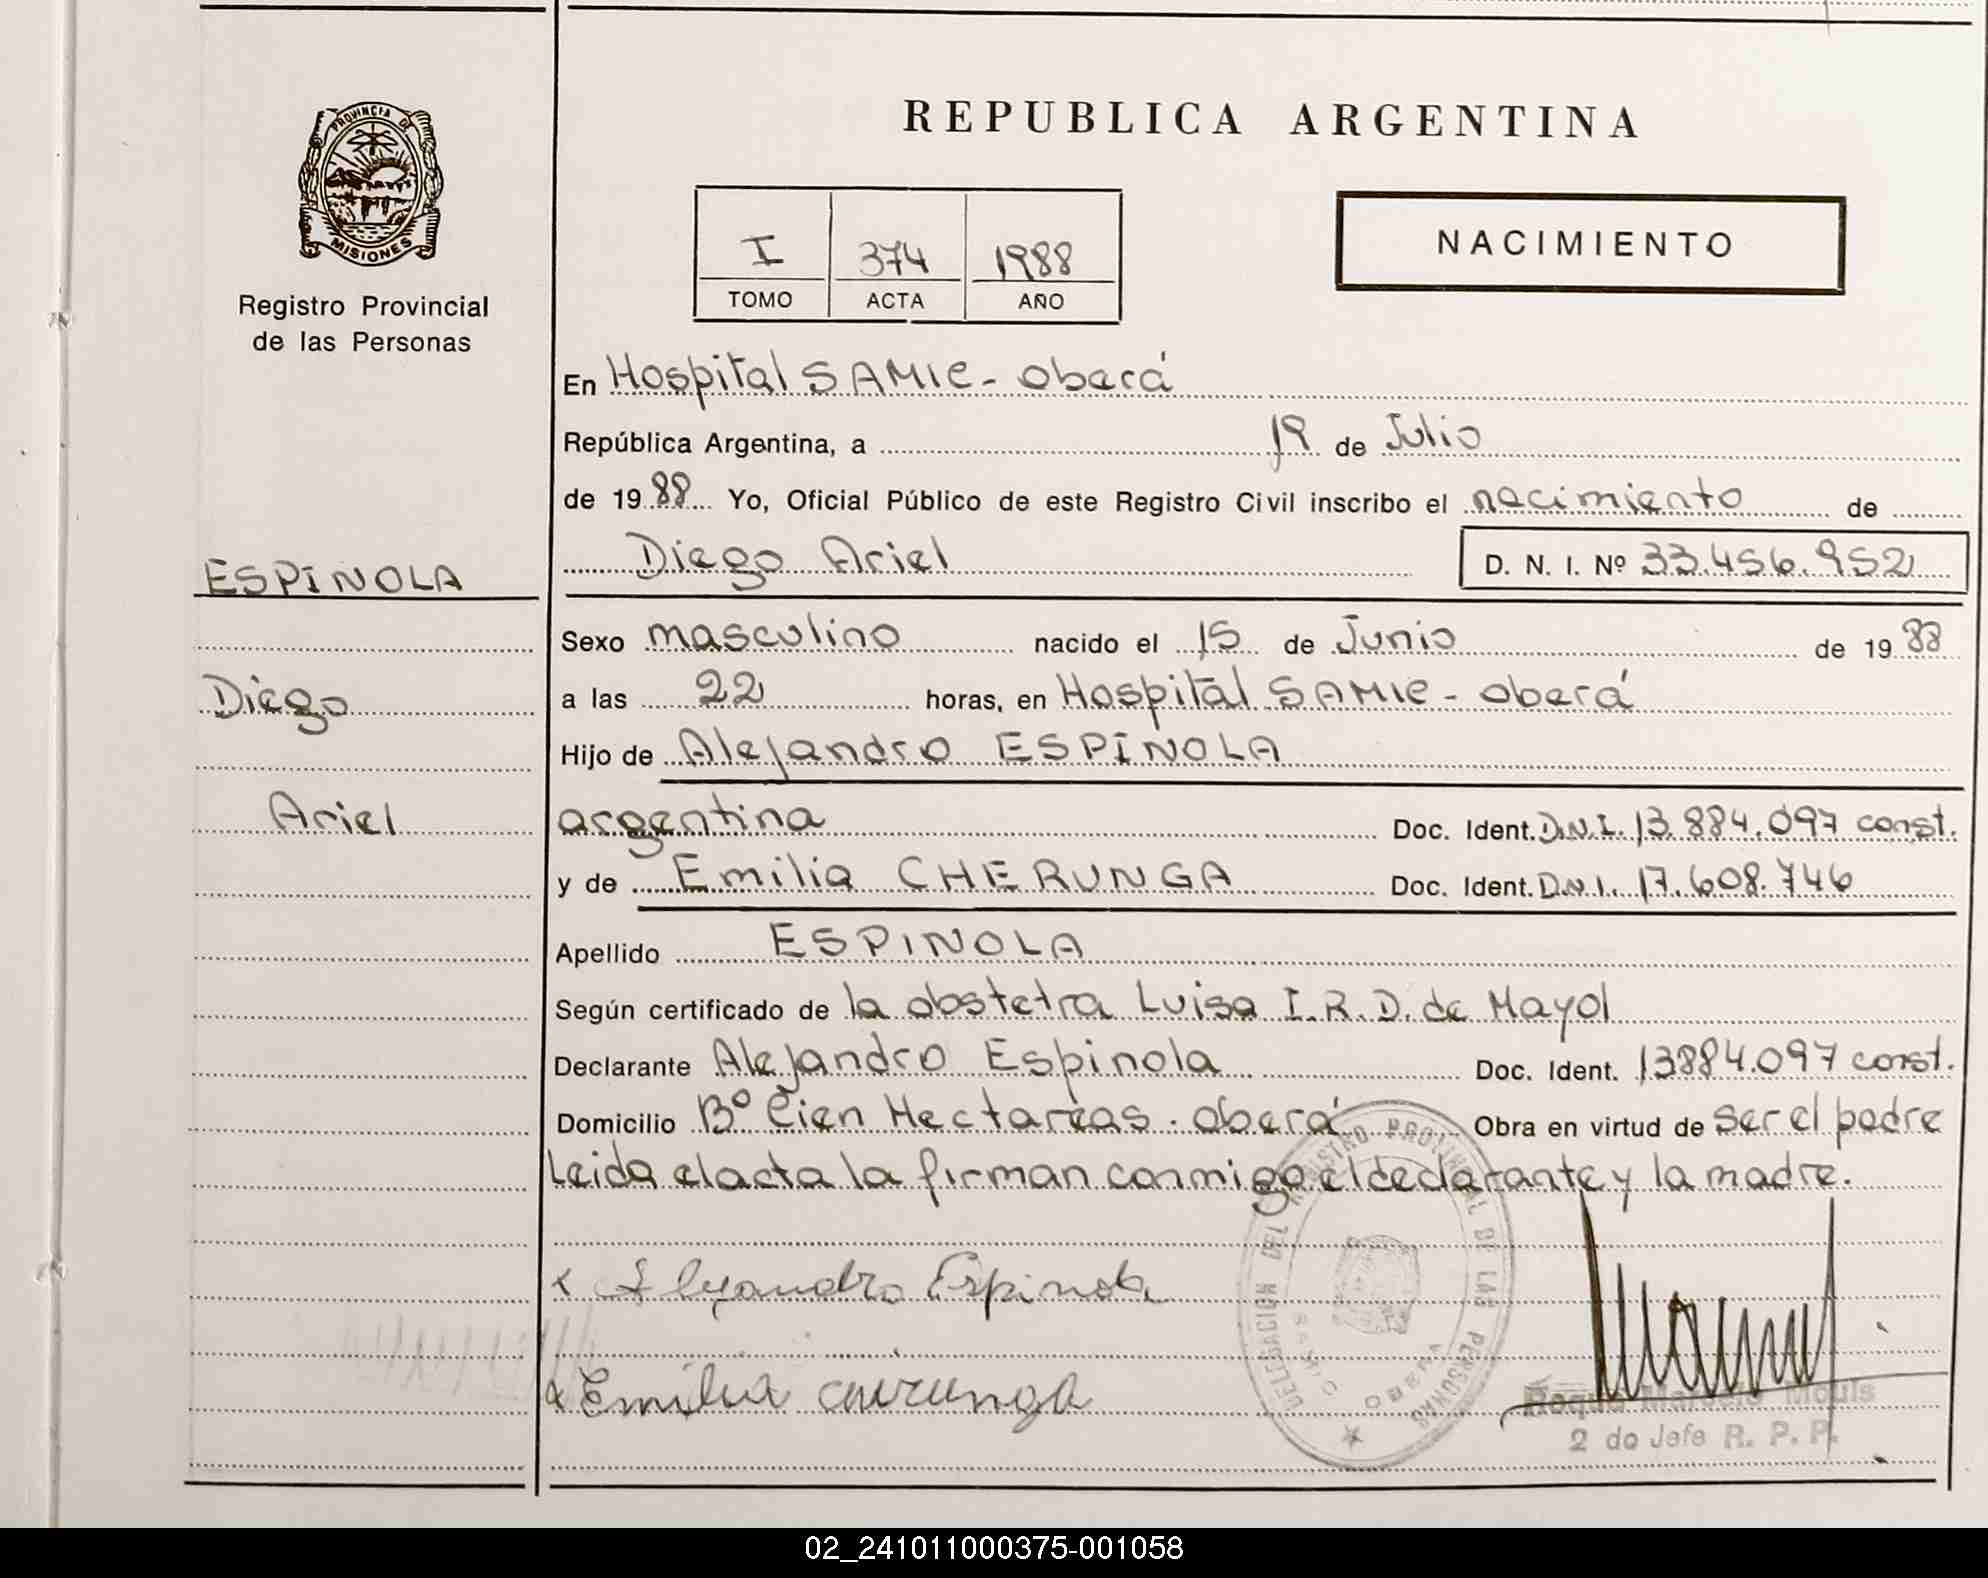 REPUBLICA ARGENTINA
PROVINCIA DE
MISIONES
Registro Provincial
de las Personas
I 374 1988
TOMO ACTA AÑO
NACIMIENTO
En Hospital SAMIC - Oberá
República Argentina, a 19 de Julio
de 19 88 Yo, Oficial Público de este Registro Civil inscribo el nacimiento de
Diego Ariel D. N. I. Nº 33.456.952
ESPINOLA
Diego
Ariel
Sexo masculino nacido el 15 de Junio de 19 88
a las 22 horas, en Hospital SAMIC - Oberá
Hijo de Alejandro ESPINOLA
argentina Doc. Ident. D.N.I. 13.884.097 const.
y de Emilia CHERUNGA Doc. Ident. D.N.I. 17.608.746
Apellido ESPINOLA
Según certificado de la obstetra Luisa I. R. D. de Mayol
Declarante Alejandro Espinola Doc. Ident. 13884.097 const.
Domicilio Bº Cien Hectareas. Oberá Obra en virtud de ser el padre
Leida el acta la firman conmigo el declarante y la madre.
x Alejandro Espinola
x Emilia
DELEGACION DEL REGISTRO PROVINCIAL DE LAS PERSONAS
OBERA
Roque Marcelo Mouls
2 do Jefe R. P. P.
02_241011000375-001058